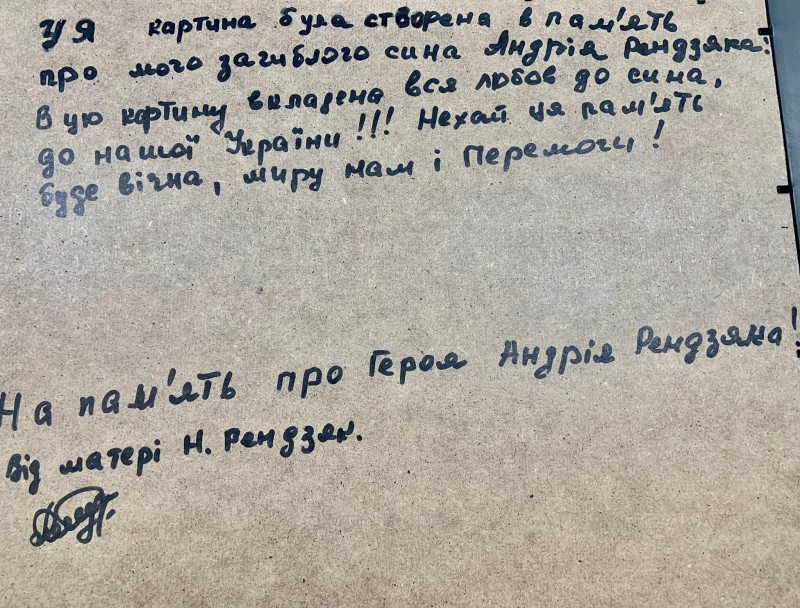 Ця картина була створена в пам'ять
про мого загиблого сина Андрія Рендзяка.
В цю картину вкладена вся любов до сина,
до нашої України!!! Нехай ця пам'ять
буде вічна, миру нам і Перемоги!
На пам'ять про Героя Андрія Рендзяка!
Від матері Н. Рендзяк.